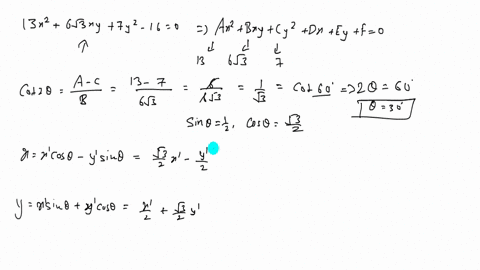 13x² + 6√3xy + 7y² - 16 = 0 => Ax² + Bxy + Cy² + Dx + Ey + F = 0
13 6√3 7
Cot2θ = A-C/B = 13-7/6√3 = 6/6√3 = 1/√3 = Cot 60° => 2θ = 60°
θ = 30°
Sinθ = 1/2, Cosθ = √3/2
x = x'Cosθ - y'sinθ = √3/2 x' - y'/2
y = x'sinθ + y'Cosθ = x'/2 + √3/2 y'